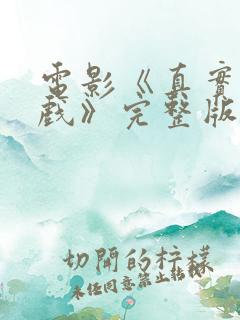 電影《真實
戲》完整版
切開的柠檬
未经同意禁止转载